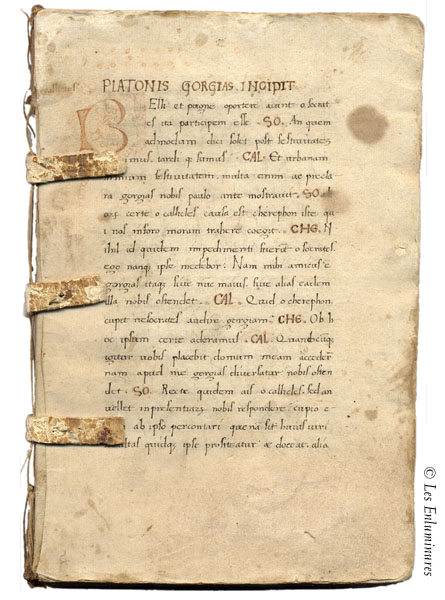 PLATONIS GORGIAS INCIPIT
BElli et pugne oportere aiunt o socrat
es ita participem esse. SO. An quem
admodum dici solet post festivitates
imus, tardi q; sumus. CAL. Et urbanam
festivitatem. multa enim ac precla
ra gorgias nobis paulo ante monstravit. SO.
certe o callicles causa est cherephon iste qu
i nos in foro moram trahere coegit. CHE. N
ihil id quidem impedimenti fuerit o socrates.
ego nanq; ipse medebor. Nam mihi amicus e
gorgias itaq; sive nunc mavis sive alias eadem
illa nobis ostendet. CAL. Quid o cherephon.
cupit ne socrates audire gorgiam. CHE. Ob h
oc ipsum certe aderamus. CAL. Quandocuq;
igitur vobis placebit domum meam acceder
nam apud me gorgias diversatur nobis osten
det. SO. Recte quidem ais o callicles. sed an
vellet in presentiarum nobis respondere. cupio e
ab ipso percontari que nam sit huius viri
facultas quidq; ipse profiteatur ac doceat. alia
© Les Enluminures